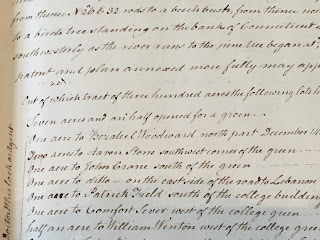 from thence N 26 E 32 rods to a beech bush, from thence nor
to a birch tree standing on the bank of Connecticut
southwesterly as the river runs to the pine tree began at
patent and plan annexed more fully may app
Out of which tract of three hundred acres the following lots
Seven acres and an half opened for a green
One acre to Bezaleel Woodward north part December 17
Two acres to Aaron Storrs southwest corner of the green
One acre to John Crane south of the green
One acre to ditto on the east side of the road to Lebanon
One acre to Patrick Field south of the college building
One acre to Comfort Sever west of the college green
half an acre to William Winton west of the college gree